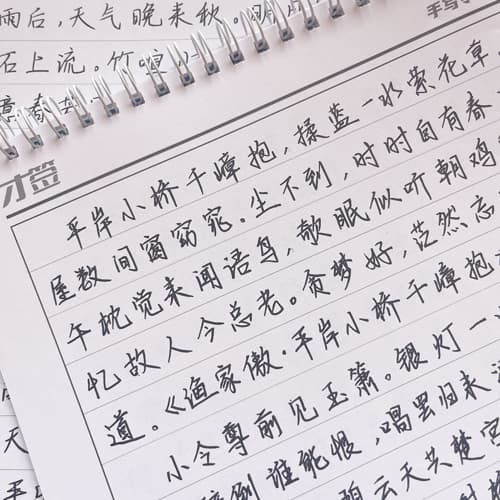 雨后，天气晚来秋。明
石上流。竹喧
手写
才签
平岸小桥千嶂抱，揉蓝一水萦花草
屋数间窗窈窕。尘不到，时时自有春
午枕觉来闻语鸟，欹眠似听朝鸡
忆故人今总老。贪梦好，茫然忘
道。《渔家傲·平岸小桥千嶂抱
小令尊前见玉箫。银灯一
倒谁能恨，唱罢归来
碧云天共楚宫
天